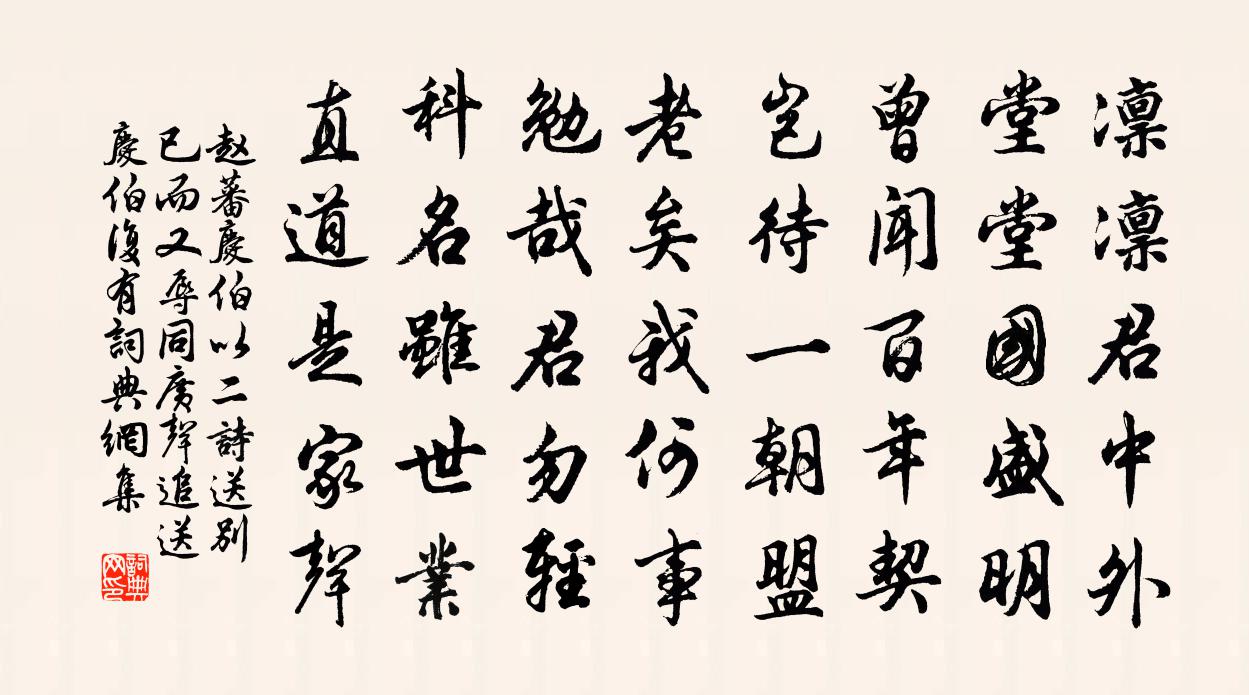 凛凛君中外
堂堂國盛明
曾聞百年契
豈待一朝盟
老矣我何事
勉哉君勿輕
科名雖世業
直道是家聲
赵蕃慶伯以二詩送别
已而又辱同廣聲追送
慶伯復有詞典網集
詞典网印